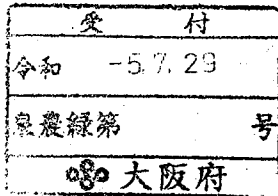 受付
令和 -5.7.29
泉農緑第 号
大阪府